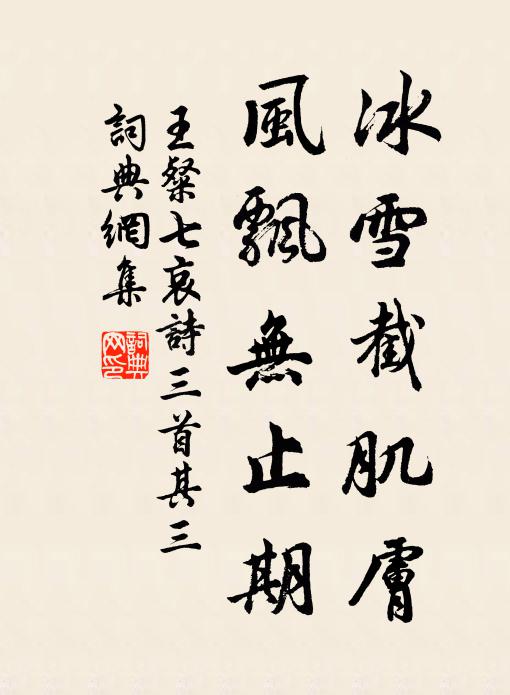 冰雪截肌膚
風飄無止期
王粲七哀詩三首其三
詞典網集
詞典網印